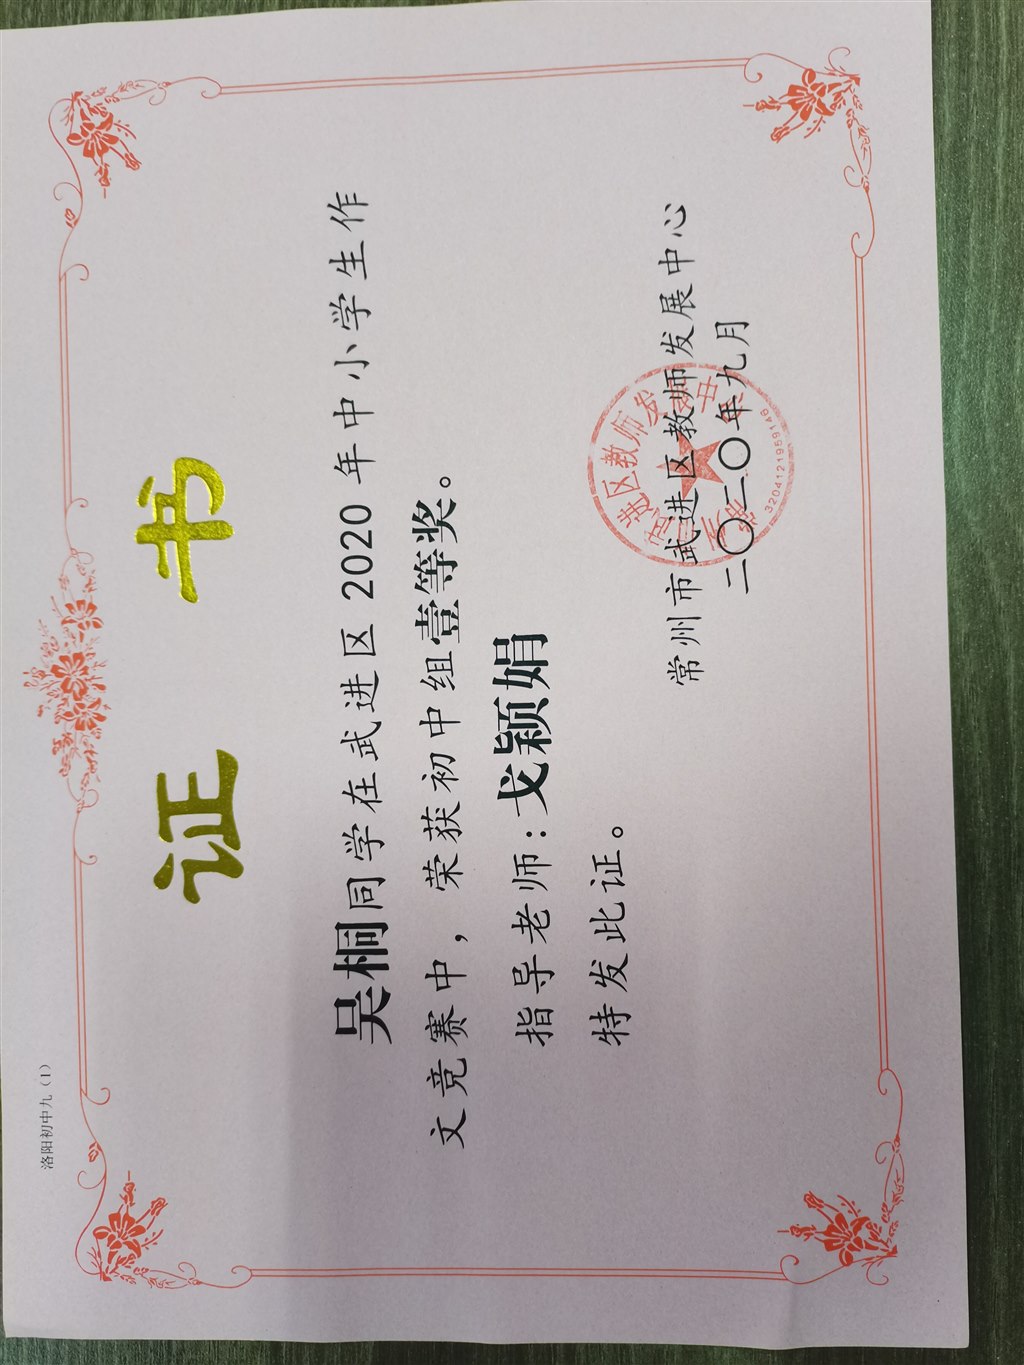 洛阳初中九（1）
证书
吴桐同学在武进区 2020 年中小学生作
文竞赛中，荣获初中组壹等奖。
指导老师：戈颖娟
特发此证。
常州市武进区教师发展中心
二〇二〇年九月
常州市武进区教师发展中心
3204121959146